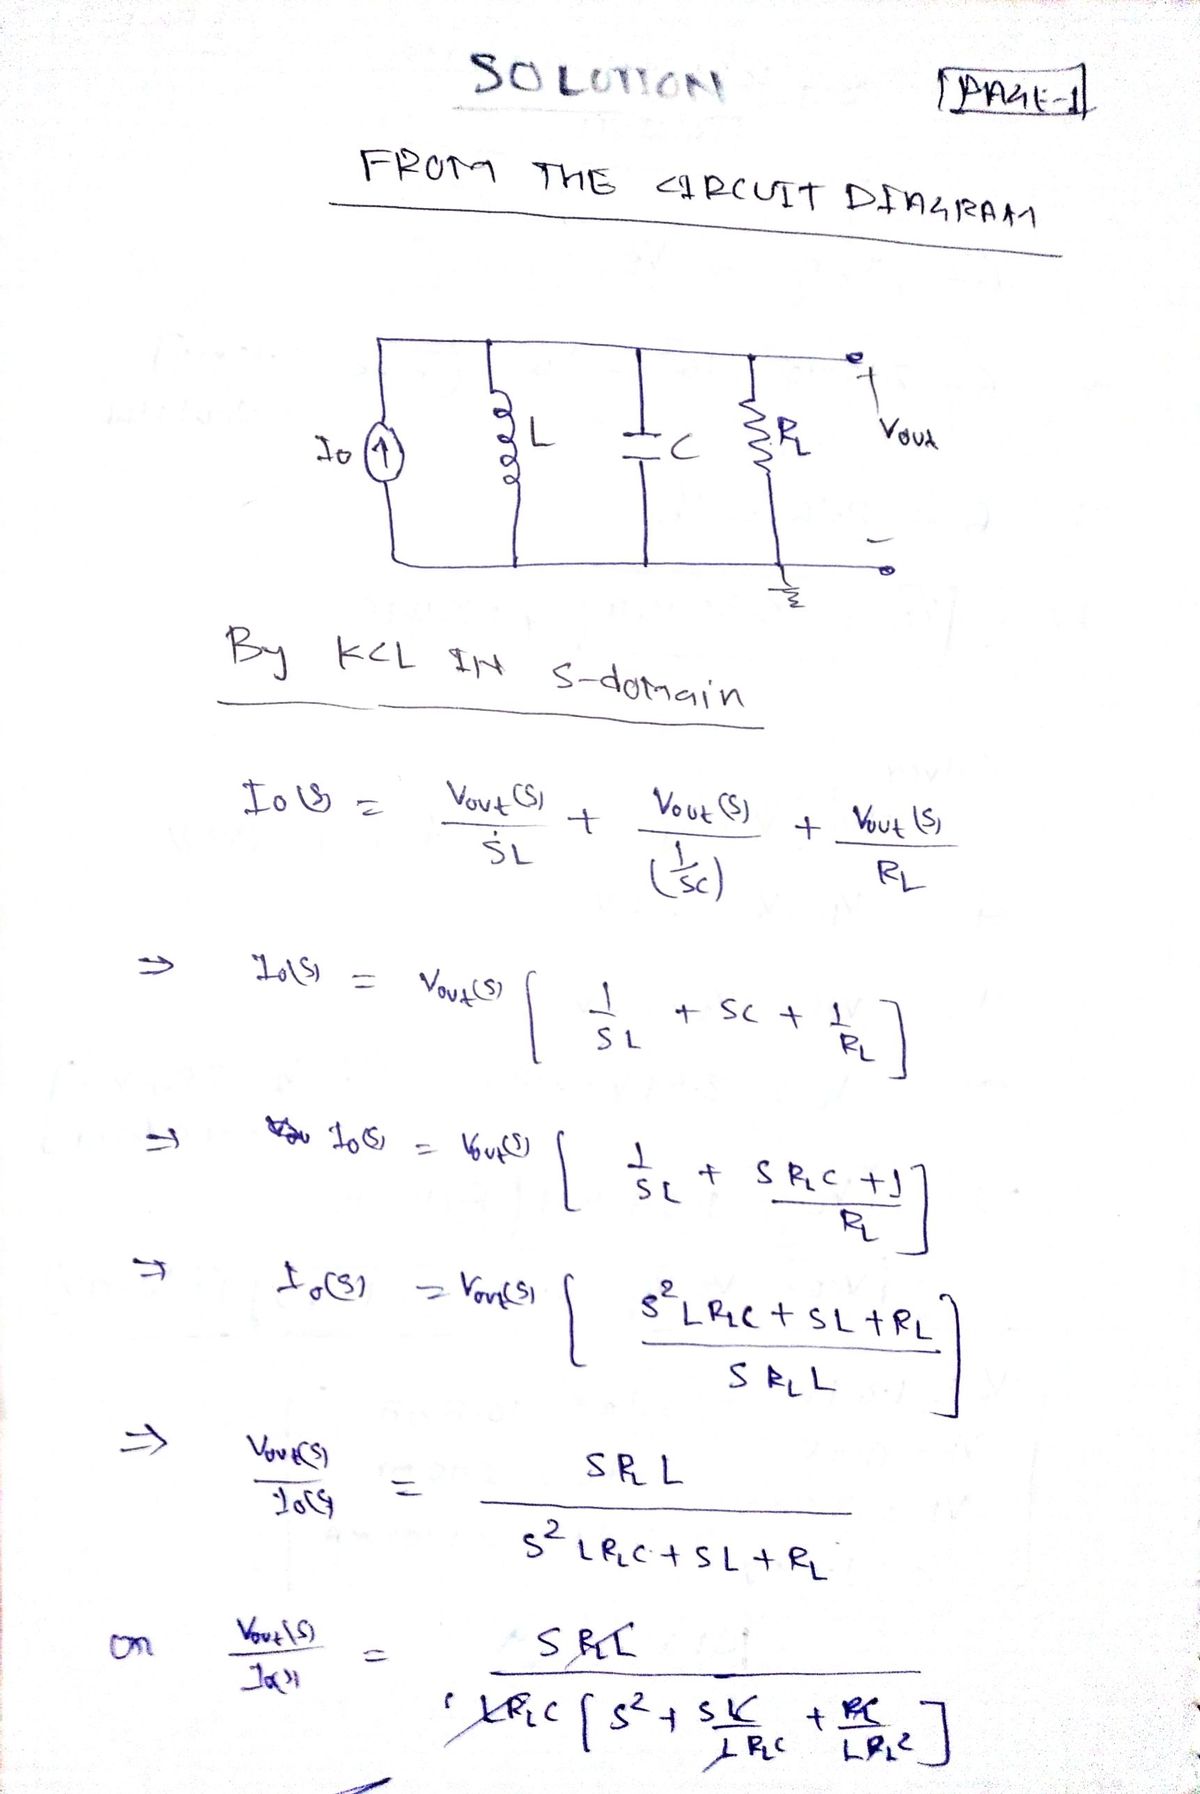 SOLUTION
PAGE-1
FROM THE CIRCUIT DIAGRAM
Io
L
C
RL
+
Vout
-
By KCL IN S-domain
Io(s) = Vout(s)/SL + Vout(s)/(1/SC) + Vout(s)/RL
⇒ Io(s) = Vout(s) [ 1/SL + SC + 1/RL ]
⇒ Io(s) = Vout(s) [ 1/SL + (S RLC + 1)/RL ]
⇒ Io(s) = Vout(s) [ (S² L RLC + SL + RL)/(S RL L) ]
⇒ Vout(s)/Io(s) = S RL L/(S² L RLC + SL + RL)
or Vout(s)/Io(s) = S RL L/(L RLC [ S² + S L/(L RLC) + RL/(L RL C) ])